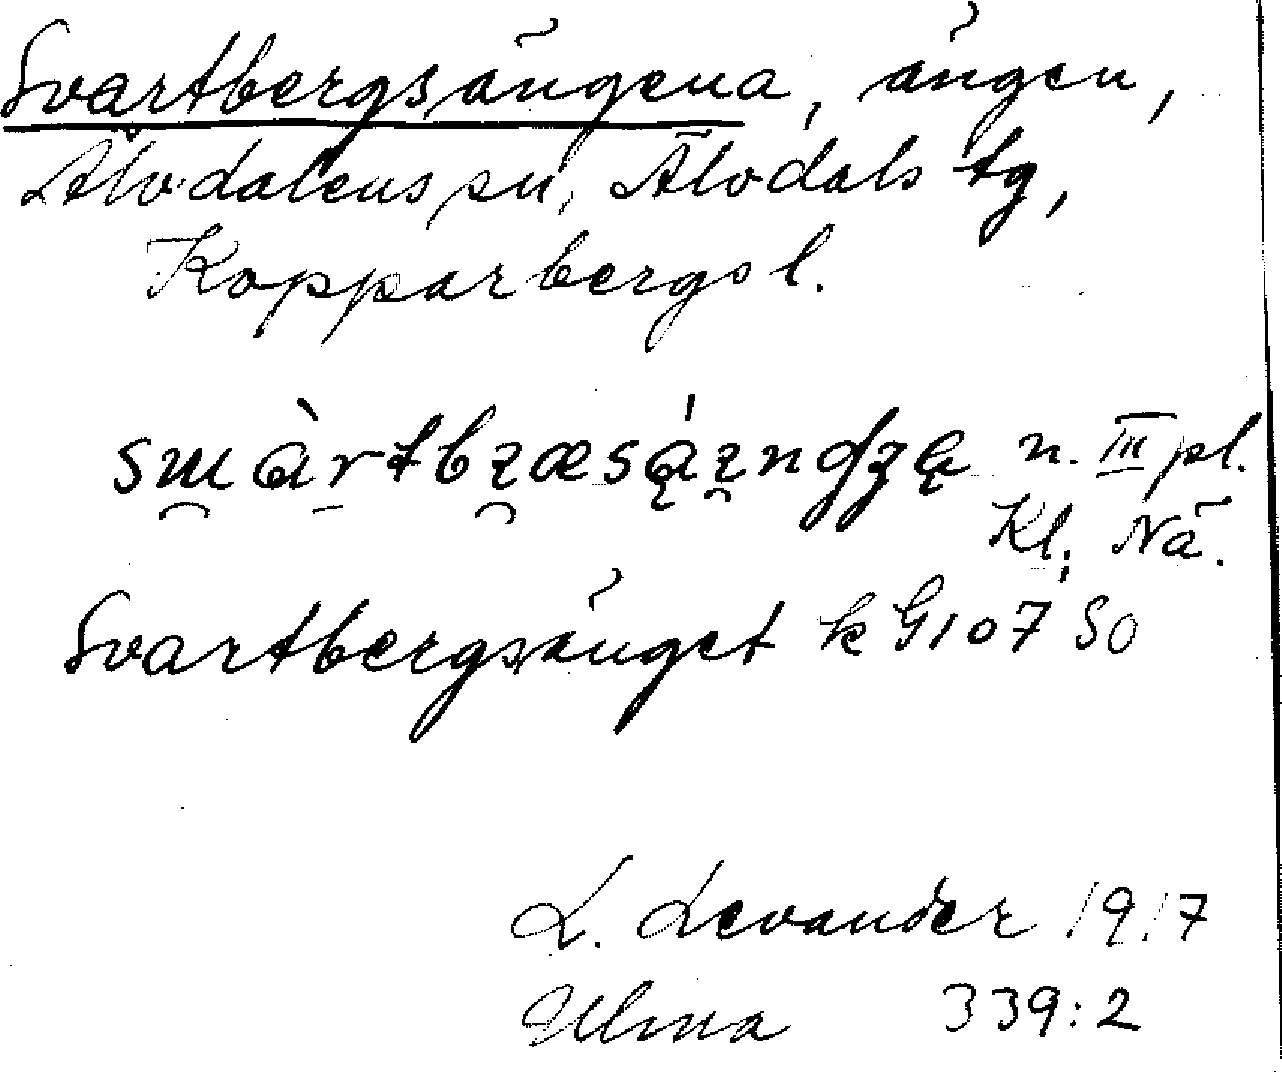 Svartbergsängena, ängen,
Älvdalens sn, Älvdals tg,
Kopparbergs l.
n. III pl.
Kl, Nä.
Svartbergsänget k G107 SO
L. Levander 1917
Ulma 339:2